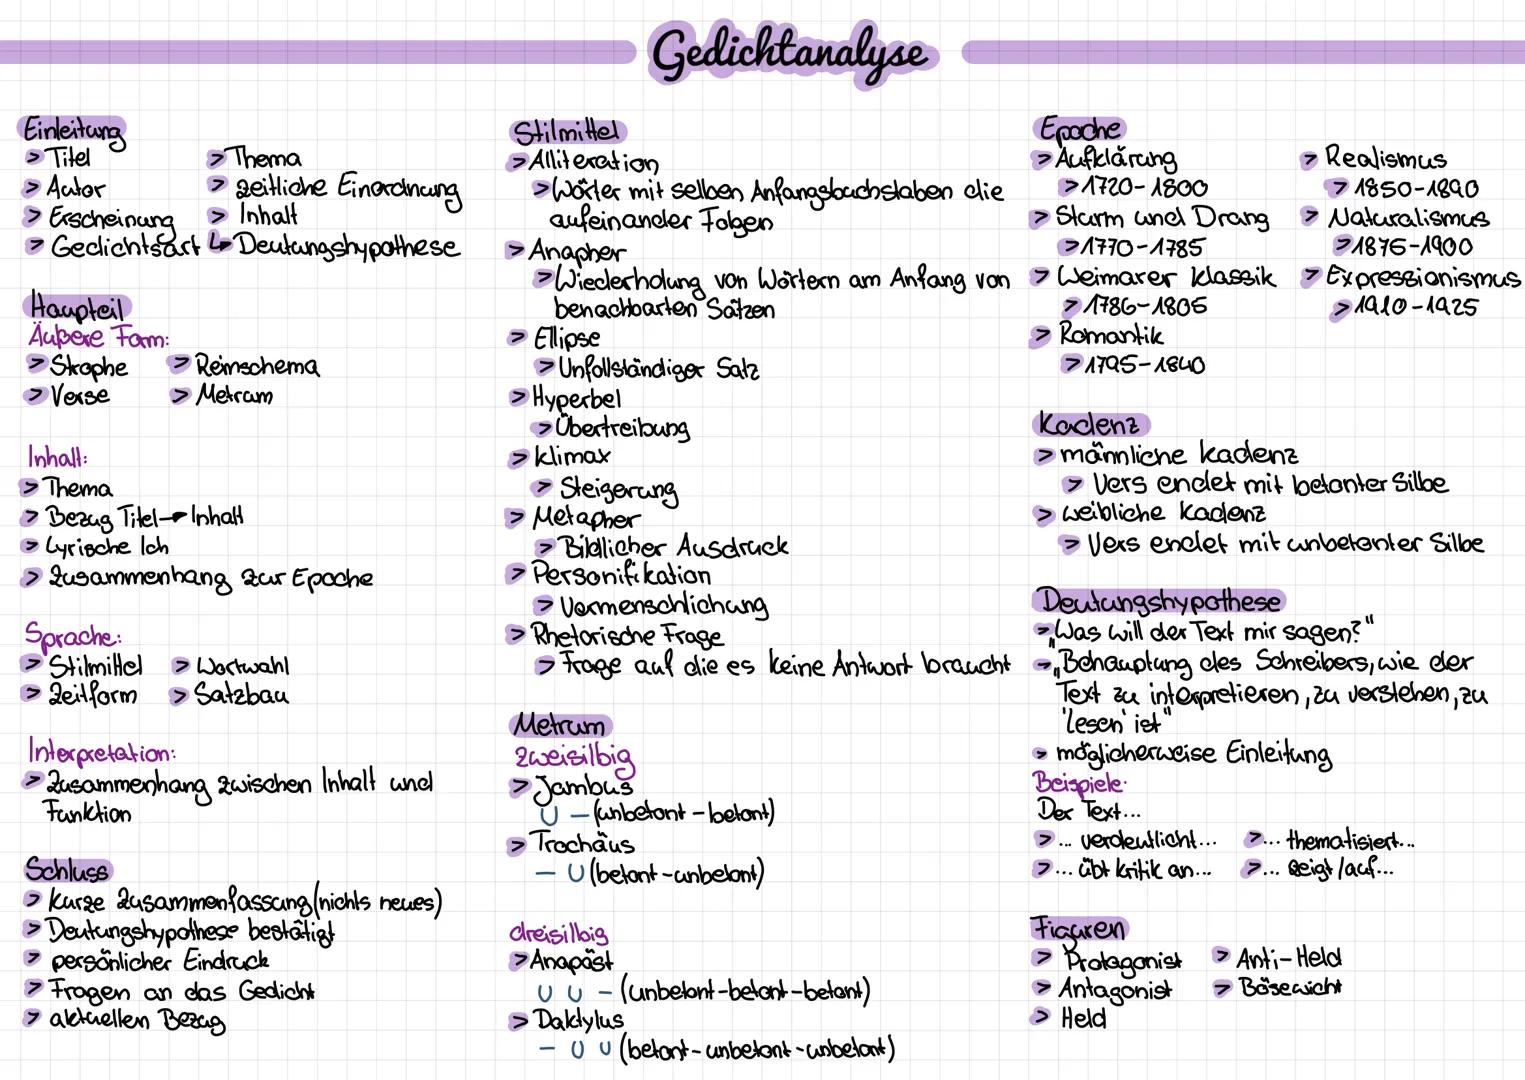 Gedichtanalyse
Einleitung
> Titel
> Autor
> Erscheinung
> Gedichtsart
> Thema
> zeitliche Einordnung
> Inhalt
↳ Deutungshypothese
Haupteil
Äußere Form:
> Strophe
> Verse
> Reimschema
> Metrum
Inhalt:
> Thema
> Bezug Titel → Inhalt
> Lyrische Ich
> Zusammenhang zur Epoche
Sprache:
> Stilmittel
> Zeitform
> Wortwahl
> Satzbau
Interpretation:
> Zusammenhang zwischen Inhalt und
Funktion
Schluss
> kurze Zusammenfassung (nichts neues)
> Deutungshypothese bestätigt
> persönlicher Eindruck
> Fragen an das Gedicht
> aktuellen Bezug
Stilmittel
> Alliteration
> Wörter mit selben Anfangsbuchstaben die
aufeinander Folgen
> Anapher
> Wiederholung von Wörtern am Anfang von
benachbarten Sätzen
> Ellipse
> Unfollständiger Satz
> Hyperbel
> Übertreibung
> Klimax
> Steigerung
> Metapher
> Bildlicher Ausdruck
> Personifikation
> Vermenschlichung
> Rhetorische Frage
> Frage auf die es keine Antwort braucht
Metrum
zweisilbig
> Jambus
∪ – (unbetont - betont)
> Trochäus
– ∪ (betont - unbetont)
dreisilbig
> Anapäst
∪ ∪ – (unbetont - betont - betont)
> Daktylus
– ∪ ∪ (betont - unbetont - unbetont)
Epoche
> Aufklärung
> 1720 - 1800
> Sturm und Drang
> 1770 - 1785
> Weimarer Klassik
> 1786 - 1805
> Romantik
> 1795 - 1840
> Realismus
> 1850 - 1890
> Naturalismus
> 1876 - 1900
> Expressionismus
> 1910 - 1925
Kadenz
> männliche Kadenz
> Vers endet mit betonter Silbe
> weibliche Kadenz
> Vers endet mit unbetonter Silbe
Deutungshypothese
> „Was will der Text mir sagen?"
> „Behauptung des Schreibers, wie der
Text zu interpretieren, zu verstehen, zu
'lesen' ist"
> möglicherweise Einleitung
Beispiele:
Der Text...
> ... verdeutlicht...
> ... übt kritik an...
> ... thematisiert...
> ... zeigt /auf...
Figuren
> Protagonist
> Antagonist
> Held
> Anti-Held
> Bösewicht